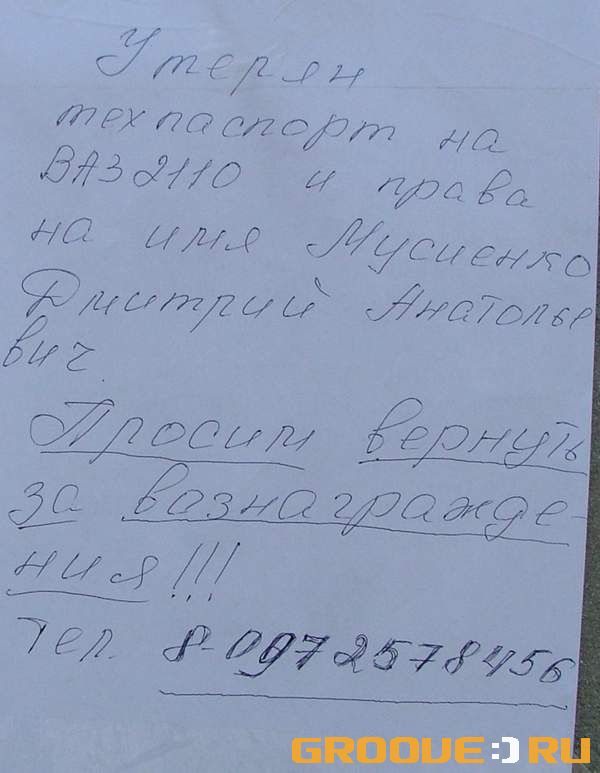 Утерян
техпаспорт на
ВАЗ 2110 и права
на имя Мусиенко
Дмитрий Анатолье
вич.
Просим вернуть
за вазнагражде-
ния!!!
Тел. 8-0972578456
GROOVE:)RU